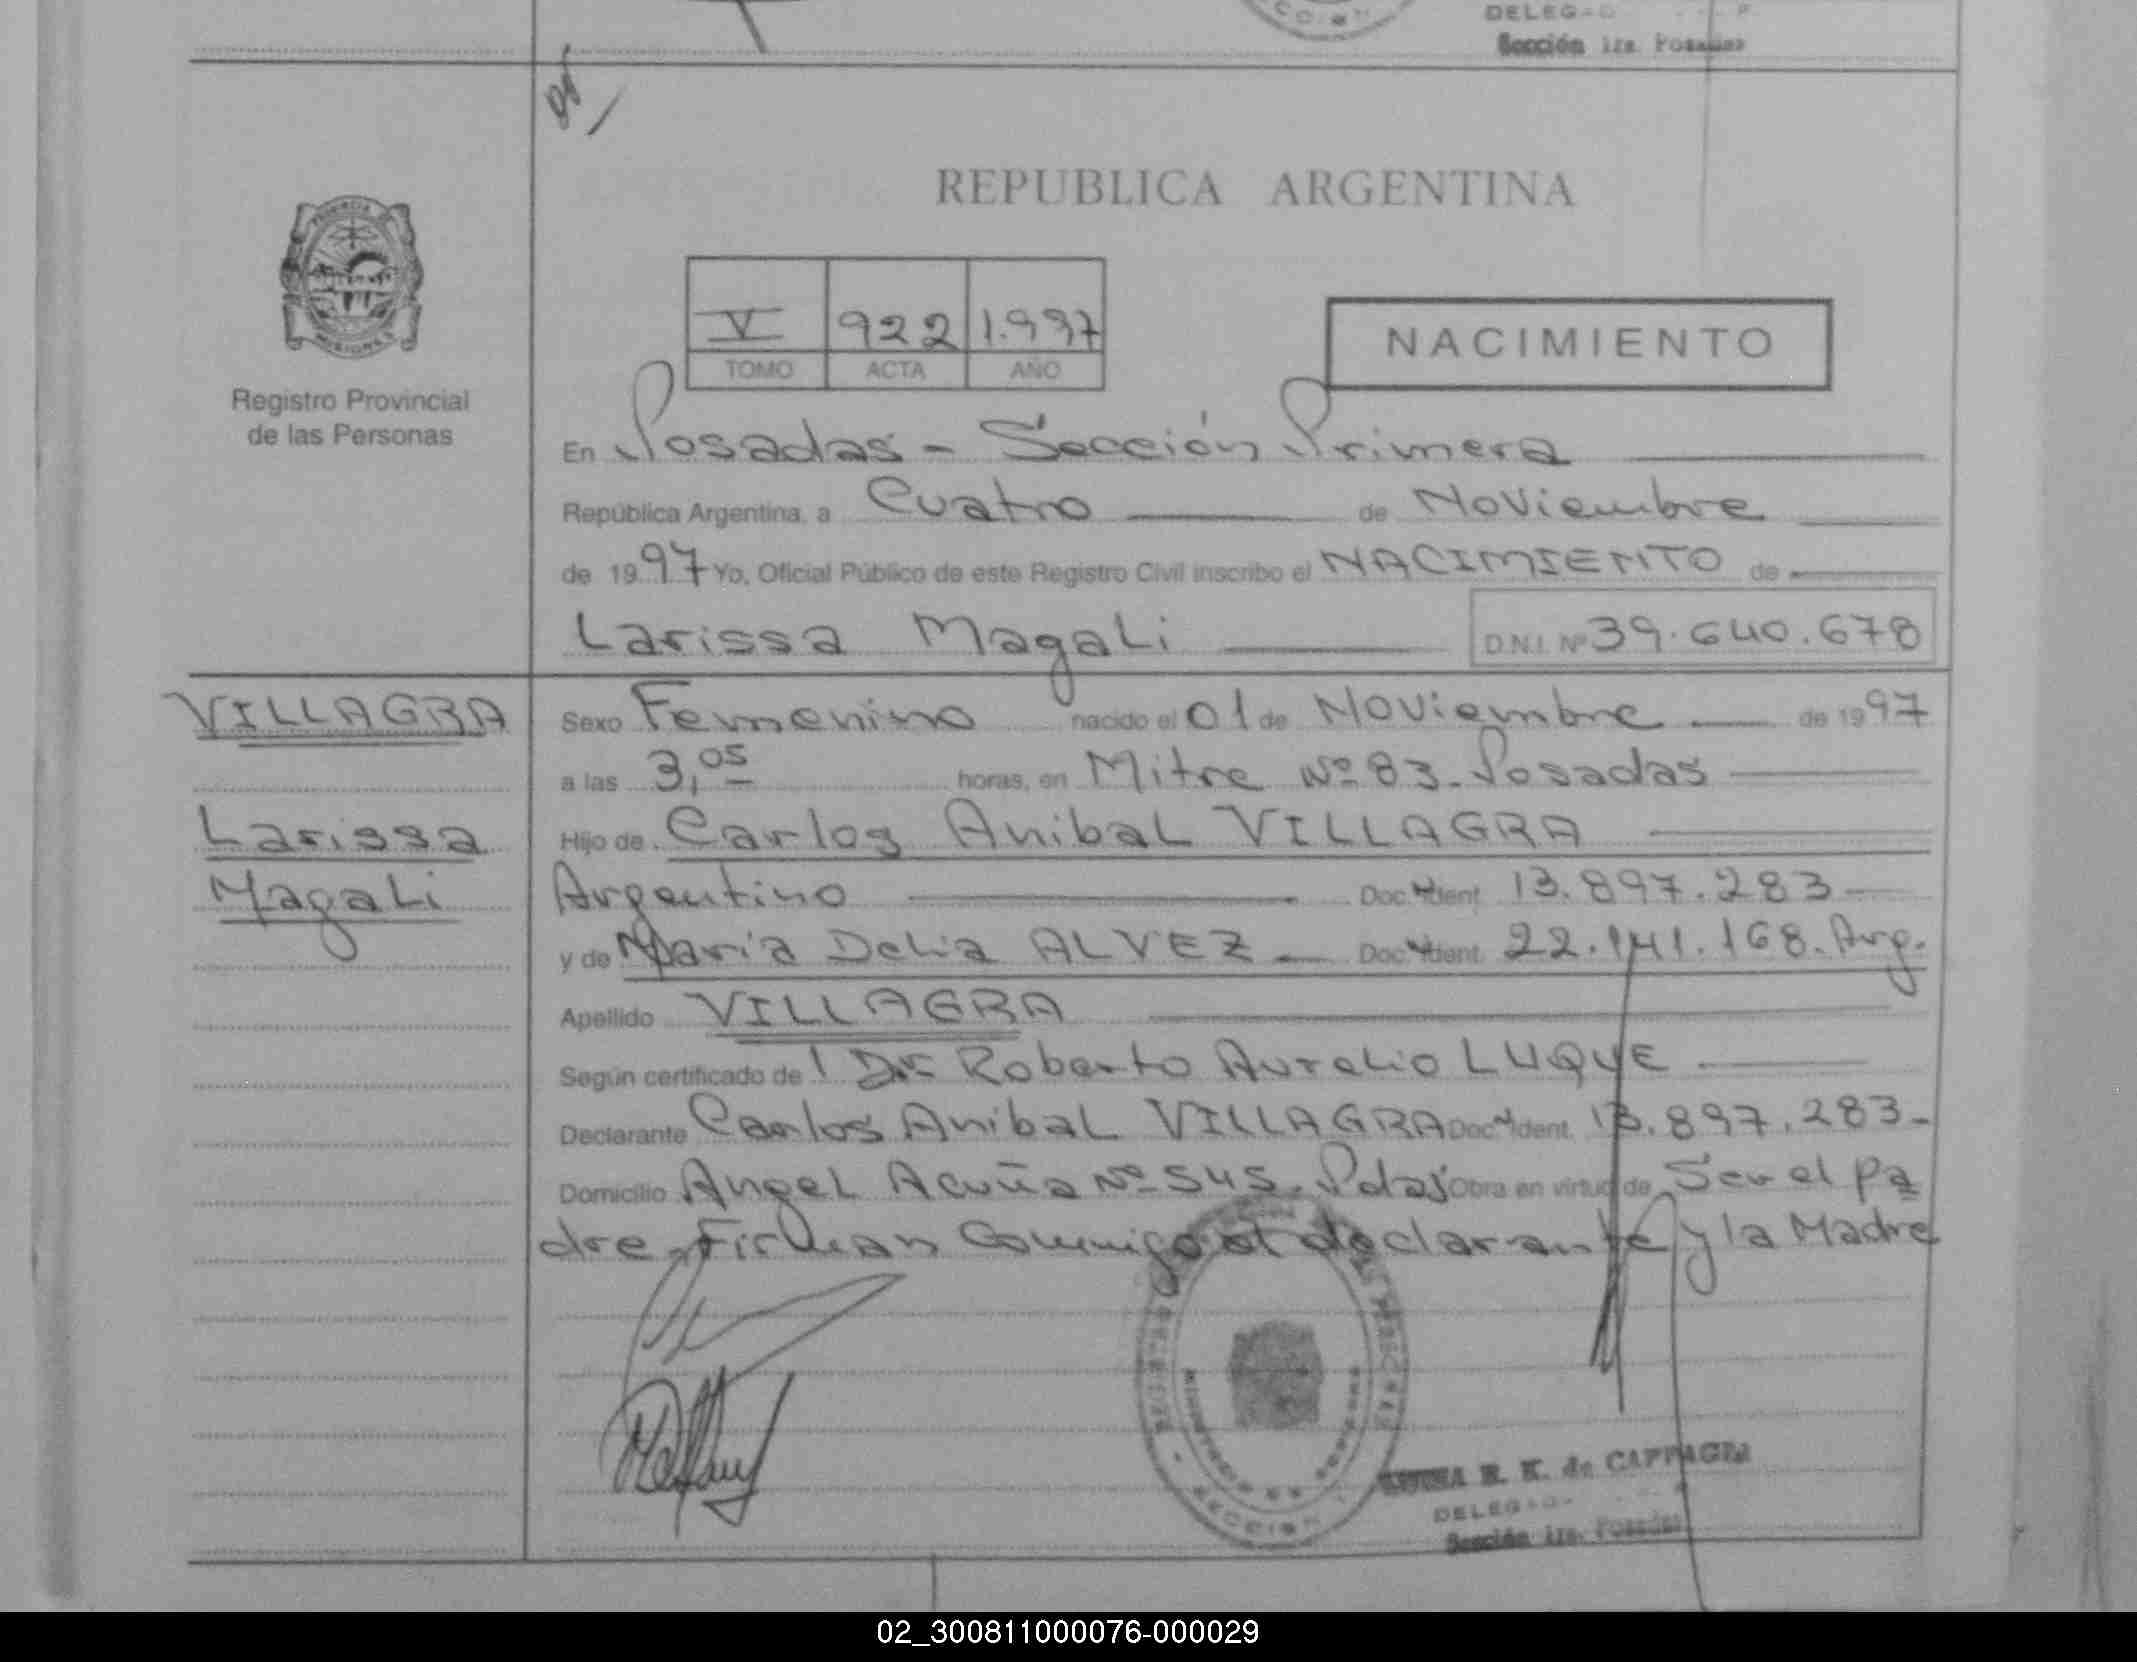 DELEG
Sección 1ra. Posadas
REPUBLICA ARGENTINA
V 922 1.997
TOMO ACTA AÑO
NACIMIENTO
MISIONES
Registro Provincial
de las Personas
En Posadas - Sección Primera
República Argentina, a Cuatro de Noviembre
de 1997 Yo, Oficial Público de este Registro Civil inscribo el NACIMIENTO de
Larissa Magali D.N.I. Nº 39.640.678
VILLAGRA
Larissa
Magali
Sexo Femenino nacido el 01 de Noviembre de 1997
a las 3,05 horas, en Mitre Nº 83 - Posadas
Hijo de Carlos Anibal VILLAGRA
Argentino Doc. Ident. 13.897.283
y de Maria Delia ALVEZ Doc. Ident. 22.141.168. Arg.
Apellido VILLAGRA
Según certificado de l Dr. Roberto Aurelio LUQUE
Declarante Carlos Anibal VILLAGRA Doc. Ident. 13.897.283-
Domicilio Angel Acuña Nº 545. Pdas Obra en virtud de Ser el pa
dre. Firman Conmigo el declarante y la Madre
R. K. de
DELEG
Sección 1ra. Posadas
02_300811000076-000029